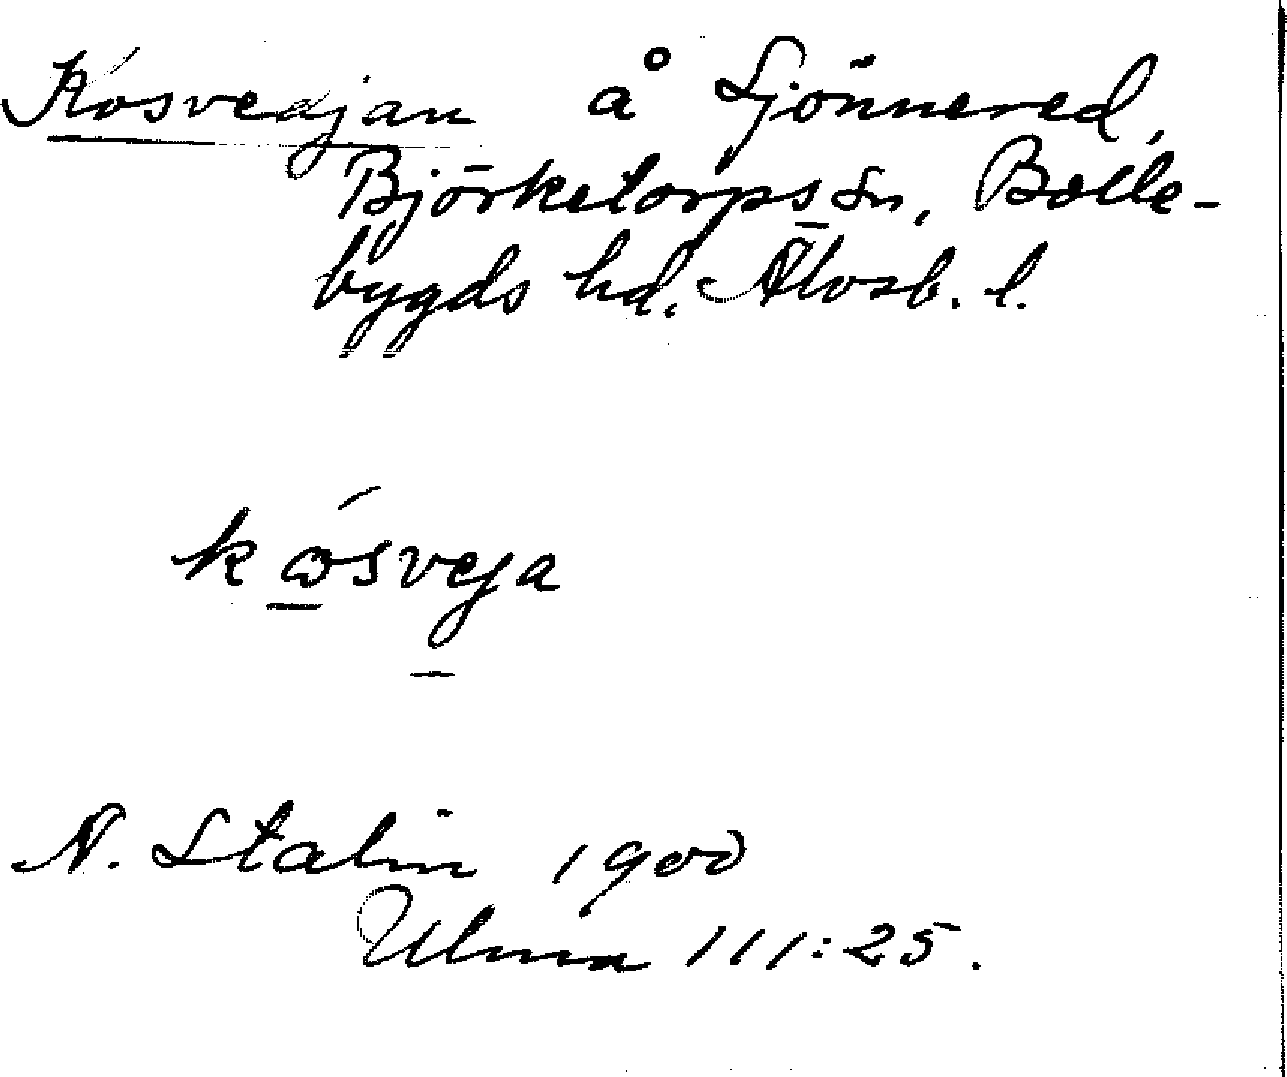 Kosvedjan å Sjönnered,
Björketorps sn, Bolle-
bygds hd. Älvsb. l.
kɷ́sveja
N. Stalin 1900
Ulma 111:25.